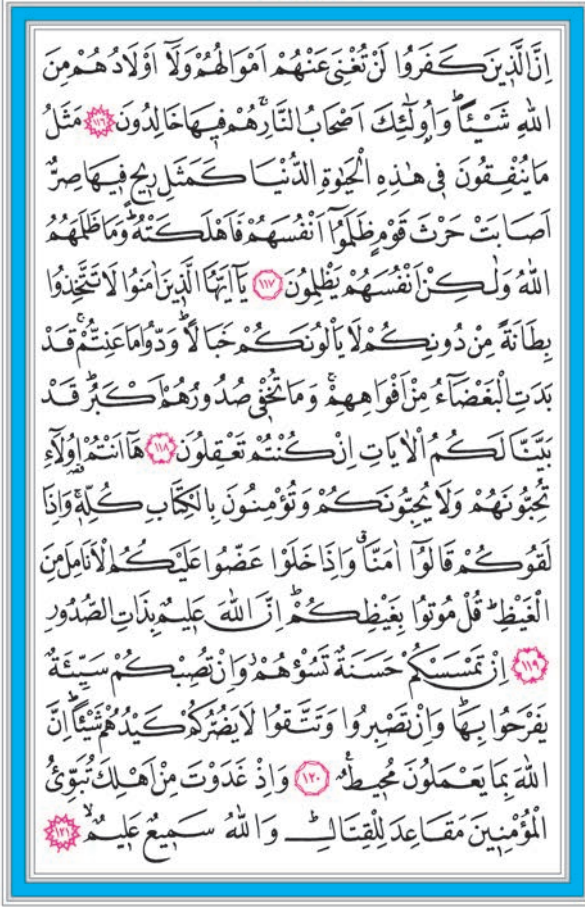 اِنَّ الَّذ۪ينَ كَفَرُوا لَنْ تُغْنِيَ عَنْهُمْ اَمْوَالُهُمْ وَلَٓا اَوْلَادُهُمْ مِنَ
اللّٰهِ شَيْـٔاًۜ وَاُو۬لٰٓئِكَ اَصْحَابُ النَّارِۚ هُمْ ف۪يهَا خَالِدُونَ ﴿١١٦﴾ مَثَلُ
مَا يُنْفِقُونَ ف۪ي هٰذِهِ الْحَيٰوةِ الدُّنْيَا كَمَثَلِ ر۪يحٍ ف۪يهَا صِرٌّ
اَصَابَتْ حَرْثَ قَوْمٍ ظَلَمُٓوا اَنْفُسَهُمْ فَاَهْلَكَتْهُۜ وَمَا ظَلَمَهُمُ
اللّٰهُ وَلٰكِنْ اَنْفُسَهُمْ يَظْلِمُونَ ﴿١١٧﴾ يَٓا اَيُّهَا الَّذ۪ينَ اٰمَنُوا لَا تَتَّخِذُوا
بِطَانَةً مِنْ دُونِكُمْ لَا يَأْلُونَكُمْ خَبَالاًۜ وَدُّوا مَا عَنِتُّمْۚ قَدْ
بَدَتِ الْبَغْضَٓاءُ مِنْ اَفْوَاهِهِمْۚ وَمَا تُخْف۪ي صُدُورُهُمْ اَكْبَرُۜ قَدْ
بَيَّنَّا لَكُمُ الْاٰيَاتِ اِنْ كُنْتُمْ تَعْقِلُونَ ﴿١١٨﴾ هَٓا اَنْتُمْ اُو۬لَٓاءِ
تُحِبُّونَهُمْ وَلَا يُحِبُّونَكُمْ وَتُؤْمِنُونَ بِالْكِتَابِ كُلِّه۪ۚ وَاِذَا
لَقُوكُمْ قَالُٓوا اٰمَنَّاۗ وَاِذَا خَلَوْا عَضُّوا عَلَيْكُمُ الْاَنَامِلَ مِنَ
الْغَيْظِۜ قُلْ مُوتُوا بِغَيْظِكُمْۜ اِنَّ اللّٰهَ عَل۪يمٌ بِذَاتِ الصُّدُورِ
﴿١١٩﴾ اِنْ تَمْسَسْكُمْ حَسَنَةٌ تَسُؤْهُمْۘ وَاِنْ تُصِبْكُمْ سَيِّئَةٌ
يَفْرَحُوا بِهَاۜ وَاِنْ تَصْبِرُوا وَتَتَّقُوا لَا يَضُرُّكُمْ كَيْدُهُمْ شَيْـٔاًۜ اِنَّ
اللّٰهَ بِمَا يَعْمَلُونَ مُح۪يطٌ۟ ﴿١٢٠﴾ وَاِذْ غَدَوْتَ مِنْ اَهْلِكَ تُبَوِّئُ
الْمُؤْمِن۪ينَ مَقَاعِدَ لِلْقِتَالِۜ وَاللّٰهُ سَم۪يعٌ عَل۪يمٌۙ ﴿١٢١﴾